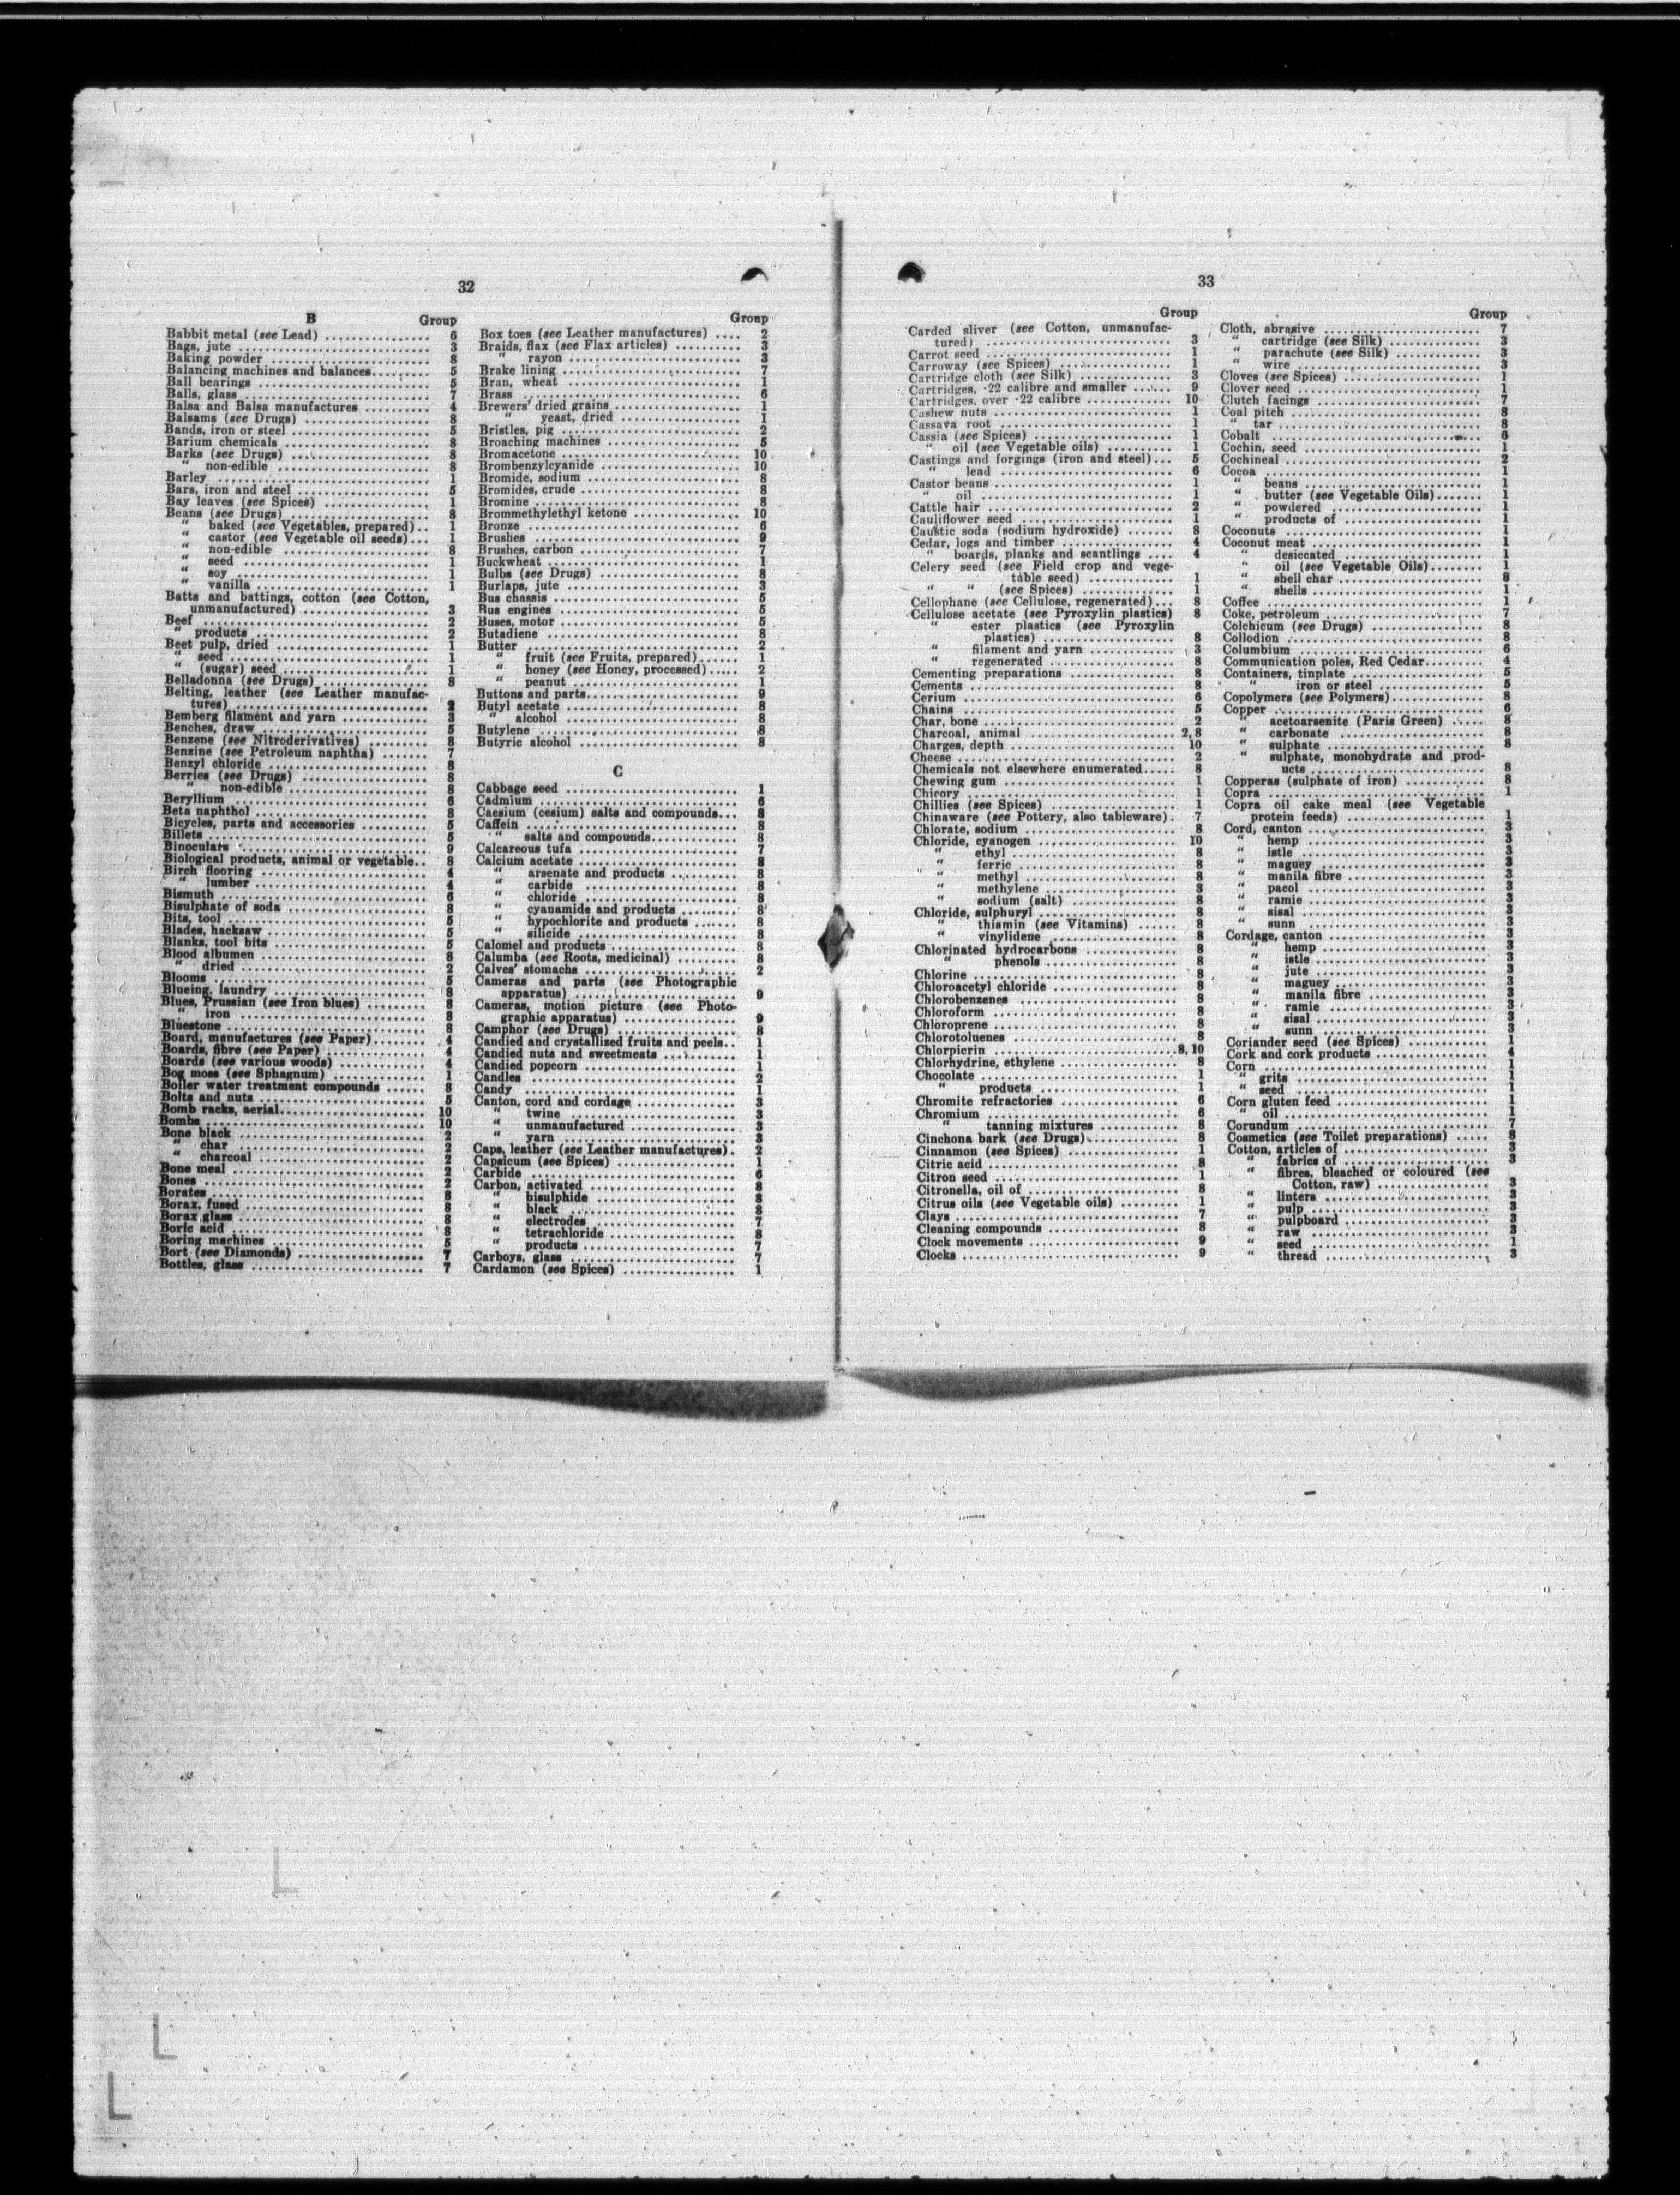 32
B
Group
Babbit metal (see Lead) .................. 6
Bags, jute .................. 3
Baking powder .................. 8
Balancing machines and balances......... 5
Ball bearings .................. 5
Balls, glass .................. 7
Balsa and Balsa manufactures .......... 4
Balsams (see Drugs) .................. 8
Bands, iron or steel .................. 5
Barium chemicals .................. 8
Barks (see Drugs) .................. 8
“ non-edible .................. 8
Barley .................. 1
Bars, iron and steel .................. 5
Bay leaves (see Spices) .................. 1
Beans (see Drugs) .................. 8
“ baked (see Vegetables, prepared).. 1
“ castor (see Vegetable oil seeds)... 1
“ non-edible .................. 8
“ seed .................. 1
“ soy .................. 1
“ vanilla .................. 1
Batts and battings, cotton (see Cotton,
unmanufactured) .................. 3
Beef .................. 2
“ products .................. 2
Beet pulp, dried .................. 1
“ seed .................. 1
“ (sugar) seed .................. 1
Belladonna (see Drugs) .................. 8
Belting, leather (see Leather manufac-
tures) .................. 2
Bemberg filament and yarn .................. 3
Benches, draw .................. 5
Benzene (see Nitroderivatives) .......... 8
Benzine (see Petroleum naphtha) ....... 7
Benzyl chloride .................. 8
Berries (see Drugs) .................. 8
“ non-edible .................. 8
Beryllium .................. 6
Beta naphthol .................. 8
Bicycles, parts and accessories .......... 5
Billets .................. 5
Binoculars .................. 9
Biological products, animal or vegetable.. 8
Birch flooring .................. 4
“ lumber .................. 4
Bismuth .................. 6
Bisulphate of soda .................. 8
Bits, tool .................. 5
Blades, hacksaw .................. 5
Blanks, tool bits .................. 5
Blood albumen .................. 8
“ dried .................. 2
Blooms .................. 5
Blueing, laundry .................. 8
Blues, Prussian (see Iron blues) .......... 8
“ iron .................. 8
Bluestone .................. 8
Board, manufactures (see Paper)........ 4
Boards, fibre (see Paper) .................. 4
Boards (see various woods) .................. 4
Bog moss (see Sphagnum) .................. 1
Boiler water treatment compounds ...... 8
Bolts and nuts .................. 5
Bomb racks, aerial.................. 10
Bombs .................. 10
Bone black .................. 2
“ char .................. 2
“ charcoal .................. 2
Bone meal .................. 2
Bones .................. 2
Borates .................. 8
Borax, fused .................. 8
Borax glass .................. 8
Boric acid .................. 8
Boring machines .................. 5
Bort (see Diamonds) .................. 7
Bottles, glass .................. 7
Group
Box toes (see Leather manufactures) .... 2
Braids, flax (see Flax articles) .......... 3
“ rayon .................. 3
Brake lining .................. 7
Bran, wheat .................. 1
Brass .................. 6
Brewers' dried grains .................. 1
“ yeast, dried .................. 1
Bristles, pig .................. 2
Broaching machines .................. 5
Bromacetone .................. 10
Brombenzylcyanide .................. 10
Bromide, sodium .................. 8
Bromides, crude .................. 8
Bromine .................. 8
Brommethylethyl ketone .................. 10
Bronze .................. 6
Brushes .................. 9
Brushes, carbon .................. 7
Buckwheat .................. 1
Bulbs (see Drugs) .................. 8
Burlaps, jute .................. 3
Bus chassis .................. 5
Bus engines .................. 5
Buses, motor .................. 5
Butadiene .................. 8
Butter .................. 2
“ fruit (see Fruits, prepared)...... 1
“ honey (see Honey, processed).... 2
“ peanut .................. 1
Buttons and parts.................. 9
Butyl acetate .................. 8
“ alcohol .................. 8
Butylene .................. 8
Butyric alcohol .................. 8
C
Cabbage seed .................. 1
Cadmium .................. 6
Caesium (cesium) salts and compounds... 8
Caffein .................. 8
“ salts and compounds............ 8
Calcareous tufa .................. 7
Calcium acetate .................. 8
“ arsenate and products .......... 8
“ carbide .................. 8
“ chloride .................. 8
“ cyanamide and products ........ 8
“ hypochlorite and products ...... 8
“ silicide .................. 8
Calomel and products .................. 8
Calumba (see Roots, medicinal) .......... 8
Calves' stomachs .................. 2
Cameras and parts (see Photographic
apparatus) .................. 9
Cameras, motion picture (see Photo-
graphic apparatus) .................. 9
Camphor (see Drugs) .................. 8
Candied and crystallized fruits and peels.. 1
Candied nuts and sweetmeats .......... 1
Candied popcorn .................. 1
Candles .................. 2
Candy .................. 1
Canton, cord and cordage .................. 3
“ twine .................. 3
“ unmanufactured .................. 3
“ yarn .................. 3
Caps, leather (see Leather manufactures). 2
Capsicum (see Spices) .................. 1
Carbide .................. 6
Carbon, activated .................. 8
“ bisulphide .................. 8
“ black .................. 8
“ electrodes .................. 7
“ tetrachloride .................. 8
“ products .................. 7
Carboys, glass .................. 7
Cardamon (see Spices) .................. 1
33
Group
Carded sliver (see Cotton, unmanufac-
tured) .................. 3
Carrot seed .................. 1
Carroway (see Spices) .................. 1
Cartridge cloth (see Silk) .................. 3
Cartridges, ·22 calibre and smaller ...... 9
Cartridges, over ·22 calibre ............ 10
Cashew nuts .................. 1
Cassava root .................. 1
Cassia (see Spices) .................. 1
“ oil (see Vegetable oils) .......... 1
Castings and forgings (iron and steel)... 5
“ lead .................. 6
Castor beans .................. 1
“ oil .................. 1
Cattle hair .................. 2
Cauliflower seed .................. 1
Caustic soda (sodium hydroxide) ....... 8
Cedar, logs and timber .................. 4
“ boards, planks and scantlings .... 4
Celery seed (see Field crop and vege-
table seed) .................. 1
“ “ (see Spices) .................. 1
Cellophane (see Cellulose, regenerated)... 8
Cellulose acetate (see Pyroxylin plastics) 8
“ ester plastics (see Pyroxylin
plastics) .................. 8
“ filament and yarn .................. 3
“ regenerated .................. 8
Cementing preparations .................. 8
Cements .................. 8
Cerium .................. 6
Chains .................. 5
Char, bone .................. 2
Charcoal, animal .................. 2,8
Charges, depth .................. 10
Cheese .................. 2
Chemicals not elsewhere enumerated..... 8
Chewing gum .................. 1
Chicory .................. 1
Chillies (see Spices) .................. 1
Chinaware (see Pottery, also tableware). 7
Chlorate, sodium .................. 8
Chloride, cyanogen .................. 10
“ ethyl .................. 8
“ ferric .................. 8
“ methyl .................. 8
“ methylene .................. 8
“ sodium (salt) .................. 8
Chloride, sulphuryl .................. 8
“ thiamin (see Vitamins) ...... 8
“ vinylidene .................. 8
Chlorinated hydrocarbons .................. 8
“ phenols .................. 8
Chlorine .................. 8
Chloroacetyl chloride .................. 8
Chlorobenzenes .................. 8
Chloroform .................. 8
Chloroprene .................. 8
Chlorotoluenes .................. 8
Chlorpicrin .................. 8,10
Chlorhydrine, ethylene .................. 8
Chocolate .................. 1
“ products .................. 1
Chromite refractories .................. 6
Chromium .................. 6
“ tanning mixtures .................. 8
Cinchona bark (see Drugs).................. 8
Cinnamon (see Spices) .................. 1
Citric acid .................. 8
Citron seed .................. 1
Citronella, oil of .................. 8
Citrus oils (see Vegetable oils) ......... 1
Clays .................. 7
Cleaning compounds .................. 8
Clock movements .................. 9
Clocks .................. 9
Group
Cloth, abrasive .................. 7
“ cartridge (see Silk) .................. 3
“ parachute (see Silk) .................. 3
“ wire .................. 3
Cloves (see Spices) .................. 1
Clover seed .................. 1
Clutch facings .................. 7
Coal pitch .................. 8
“ tar .................. 8
Cobalt .................. 6
Cochin, seed .................. 1
Cochineal .................. 2
Cocoa .................. 1
“ beans .................. 1
“ butter (see Vegetable Oils)....... 1
“ powdered .................. 1
“ products of .................. 1
Coconuts .................. 1
Coconut meat .................. 1
“ desiccated .................. 1
“ oil (see Vegetable Oils)........ 1
“ shell char .................. 8
“ shells .................. 1
Coffee .................. 1
Coke, petroleum .................. 7
Colchicum (see Drugs) .................. 8
Collodion .................. 8
Columbium .................. 6
Communication poles, Red Cedar........ 4
Containers, tinplate .................. 5
“ iron or steel .................. 5
Copolymers (see Polymers).................. 8
Copper .................. 6
“ acetoarsenite (Paris Green) ..... 8
“ carbonate .................. 8
“ sulphate .................. 8
“ sulphate, monohydrate and prod-
ucts .................. 8
Copperas (sulphate of iron) ............ 8
Copra .................. 1
Copra oil cake meal (see Vegetable
protein feeds) .................. 1
Cord, canton .................. 3
“ hemp .................. 3
“ istle .................. 3
“ maguey .................. 3
“ manila fibre .................. 3
“ pacol .................. 3
“ ramie .................. 3
“ sisal .................. 3
“ sunn .................. 3
Cordage, canton .................. 3
“ hemp .................. 3
“ istle .................. 3
“ jute .................. 3
“ maguey .................. 3
“ manila fibre .................. 3
“ ramie .................. 3
“ sisal .................. 3
“ sunn .................. 3
Coriander seed (see Spices) ............ 1
Cork and cork products .................. 4
Corn .................. 1
“ grits .................. 1
“ seed .................. 1
Corn gluten feed .................. 1
“ oil .................. 1
Corundum .................. 7
Cosmetics (see Toilet preparations) ..... 8
Cotton, articles of .................. 3
“ fabrics of .................. 3
“ fibres, bleached or coloured (see
Cotton, raw) .................. 3
“ linters .................. 3
“ pulp .................. 3
“ pulpboard .................. 3
“ raw .................. 3
“ seed .................. 1
“ thread .................. 3